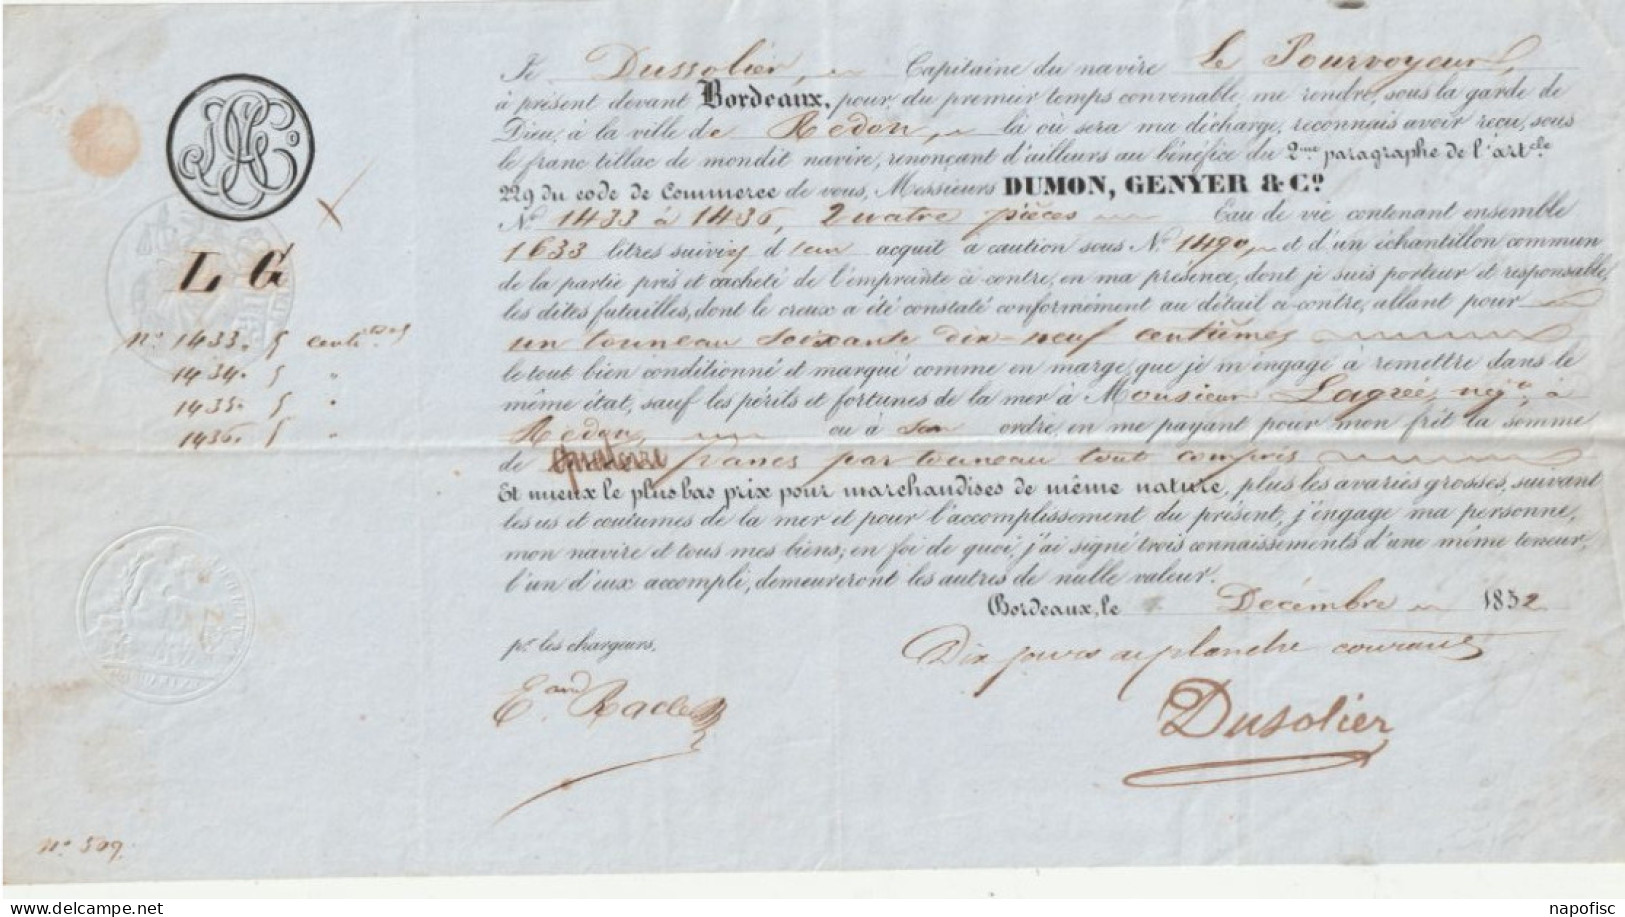 Je Dussolier, Capitaine du navire le Pourvoyeur,
à présent devant Bordeaux, pour, du premier temps convenable, me rendre, sous la garde de
Dieu, à la ville de Redon, là où sera ma décharge, reconnais avoir reçu, sous
le franc tillac de mondit navire, renonçant d'ailleurs au bénéfice du 2me paragraphe de l'artcle
229 du code de Commerce de vous, Messieurs DUMON, GENYER & Co
No 1433 à 1436, Quatre pièces Eau de vie contenant ensemble
1633 litres suivis d'un acquit à caution sous No 1490, et d'un échantillon commun
de la partie pris et cacheté de l'empreinte ci-contre, en ma présence, dont je suis porteur et responsable,
les dites futailles, dont le creux a été constaté conformément au détail ci-contre, allant pour
un tonneau soixante dix-neuf centièmes
le tout bien conditionné et marqué comme en marge, que je m'engage à remettre dans le
même état, sauf les périls et fortunes de la mer à Monsieur Lagrée, négt à
Redon, ou à son ordre, en me payant pour mon frêt la somme
de quatorze francs par tonneau tout compris
Et mieux le plus bas prix pour marchandises de même nature, plus les avaries grosses, suivant
les us et coutumes de la mer et pour l'accomplissement du présent, j'engage ma personne,
mon navire et tous mes biens; en foi de quoi, j'ai signé trois connaissements d'une même teneur,
l'un d'eux accompli, demeureront les autres de nulle valeur.
Bordeaux, le Décembre 1852
pr les chargeurs,
Dix jours de planche courants
Dusolier
L G
No 1433. 5
1434. 5 "
1435. 5 "
1436. 5 "
No 509.
napofisc